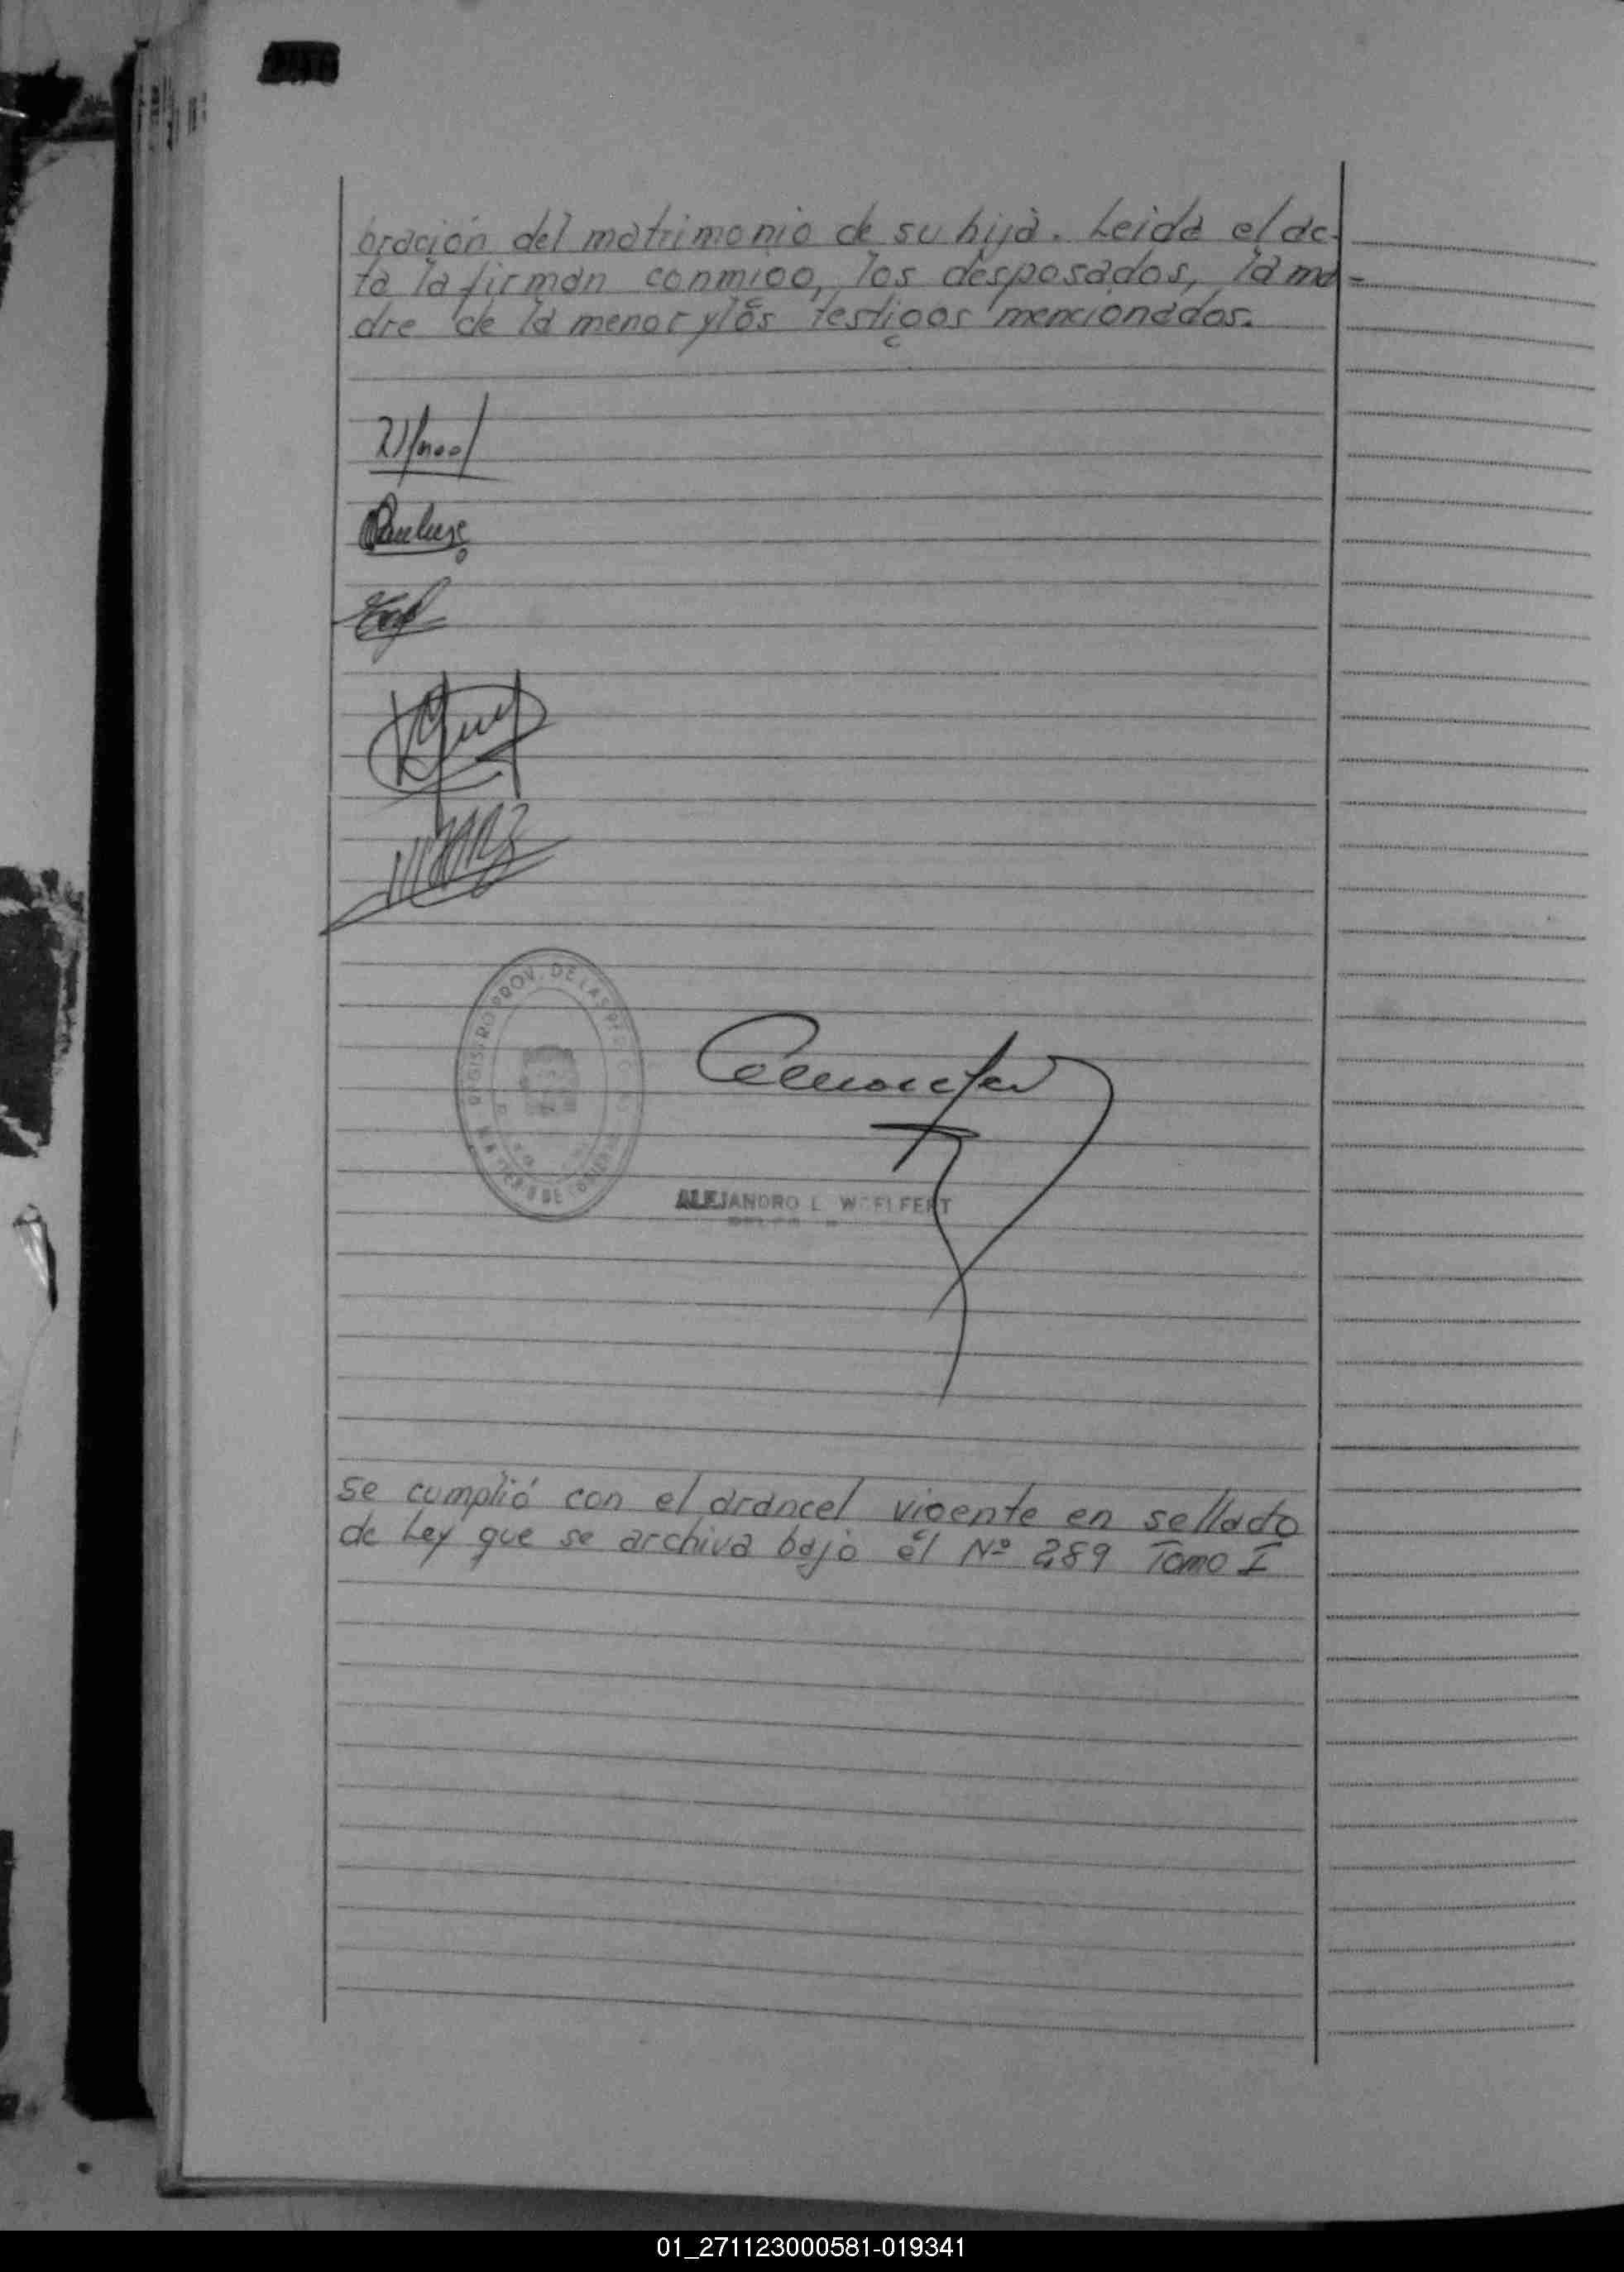 bración del matrimonio de su hija. Leida el ac-
ta la firman conmigo, los desposados, la ma-
dre de la menor y los testigos mencionados.
REGISTRO PROV. DE LAS PER
ALEJANDRO L. WOELFERT
se cumplió con el arancel vigente en sellado
de Ley que se archiva bajo el Nº 289 Tomo I
01_271123000581-019341